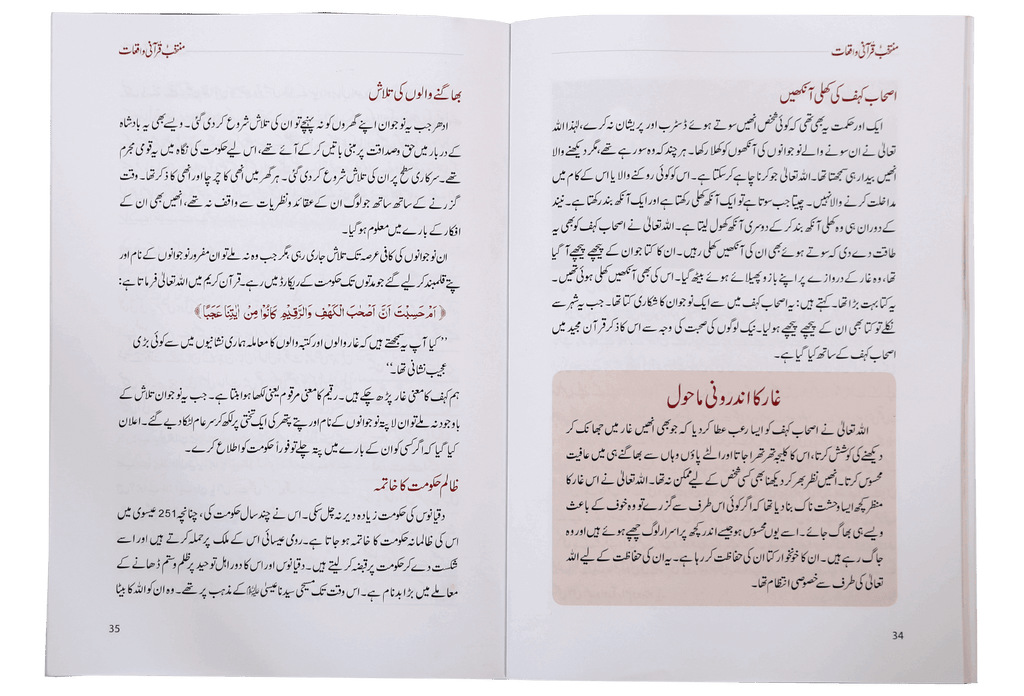 منتخب قرآنی واقعات
اصحاب کہف کی کھلی آنکھیں
ایک اور حکمت یہ بھی تھی کہ کوئی شخص انھیں سوتے ہوئے ڈسٹرب اور پریشان نہ کرے، لہٰذا اللہ
تعالیٰ نے ان سونے والے نوجوانوں کی آنکھوں کو کھلا رکھا۔ ہر چند کہ وہ سو رہے تھے، مگر دیکھنے والا
انھیں بیدار ہی سمجھتا تھا۔ اللہ تعالیٰ جو کرنا چاہے کر سکتا ہے۔ اس کو کوئی روکنے والا یا اس کے کام میں
مداخلت کرنے والا نہیں۔ چیتا جب سوتا ہے تو ایک آنکھ کھلی رکھتا ہے اور ایک آنکھ بند رکھتا ہے۔ نیند
کے دوران ہی وہ کھلی آنکھ بند کر کے دوسری آنکھ کھول لیتا ہے۔ اللہ تعالیٰ نے اصحاب کہف کو بھی یہ
طاقت دے دی کہ سوتے ہوئے بھی ان کی آنکھیں کھلی رہیں۔ ان کا کتا جو ان کے پیچھے پیچھے آ گیا
تھا، وہ غار کے دروازے پر اپنے بازو پھیلائے ہوئے بیٹھ گیا۔ اس کی بھی آنکھیں کھلی ہوئی تھیں۔
یہ کتا بہت بڑا تھا۔ کہتے ہیں: یہ اصحاب کہف میں سے ایک نوجوان کا شکاری کتا تھا۔ جب یہ شہر سے
نکلے تو کتا بھی ان کے پیچھے پیچھے ہو لیا۔ نیک لوگوں کی صحبت کی وجہ سے اس کا ذکر قرآن مجید میں
اصحاب کہف کے ساتھ کیا گیا ہے۔
غار کا اندرونی ماحول
اللہ تعالیٰ نے اصحاب کہف کو ایسا رعب عطا کر دیا کہ جو بھی انھیں غار میں جھانک کر
دیکھنے کی کوشش کرتا، اس کا کلیجہ تھرتھرا جاتا اور الٹے پاؤں وہاں سے بھاگنے ہی میں عافیت
محسوس کرتا۔ انھیں نظر بھر کر دیکھنا بھی کسی شخص کے لیے ممکن نہ تھا۔ اللہ تعالیٰ نے اس غار کا
منظر کچھ ایسا وحشت ناک بنا دیا تھا کہ اگر کوئی اس طرف سے گزرے تو وہ خوف کے باعث
ویسے ہی بھاگ جائے۔ اسے یوں محسوس ہو جیسے اندر کچھ پر اسرار لوگ چھپے ہوئے ہیں اور وہ
جاگ رہے ہیں۔ ان کا خونخوار کتا ان کی حفاظت کر رہا ہے۔ یہ ان کی حفاظت کے لیے اللہ
تعالیٰ کی طرف سے خصوصی انتظام تھا۔
34
منتخب قرآنی واقعات
بھاگنے والوں کی تلاش
ادھر جب یہ نوجوان اپنے گھروں کو نہ پہنچے تو ان کی تلاش شروع کر دی گئی۔ ویسے بھی یہ بادشاہ
کے دربار میں حق و صداقت پر مبنی باتیں کر کے آئے تھے، اس لیے حکومت کی نگاہ میں یہ قومی مجرم
تھے۔ سرکاری سطح پر ان کی تلاش شروع کر دی گئی۔ ہر گھر میں انھی کا چرچا اور انھی کا ذکر تھا۔ وقت
گزرنے کے ساتھ ساتھ جو لوگ ان کے عقائد و نظریات سے واقف نہ تھے، انھیں بھی ان کے
افکار کے بارے میں معلوم ہو گیا۔
ان نوجوانوں کی کافی عرصہ تک تلاش جاری رہی مگر جب وہ نہ ملے تو ان مفرور نوجوانوں کے نام اور
پتے قلمبند کر لیے گئے جو مدتوں تک حکومت کے ریکارڈ میں رہے۔ قرآن کریم میں اللہ تعالیٰ فرماتا ہے:
﴿ اَمْ حَسِبْتَ اَنَّ اَصْحٰبَ الْكَهْفِ وَالرَّقِيْمِ كَانُوْا مِنْ اٰيٰتِنَا عَجَبًا﴾
’’کیا آپ یہ سمجھتے ہیں کہ غار والوں اور کتبہ والوں کا معاملہ ہماری نشانیوں میں سے کوئی بڑی
عجیب نشانی تھا۔‘‘
ہم کہف کا معنی غار پڑھ چکے ہیں۔ رقیم کا معنی مرقوم یعنی لکھا ہوا بنتا ہے۔ جب یہ نوجوان تلاش کے
باوجود نہ ملے تو ان لاپتہ نوجوانوں کے نام اور پتے پتھر کی ایک تختی پر لکھ کر سرعام لٹکا دیے گئے۔ اعلان
کیا گیا کہ اگر کسی کو ان کے بارے میں پتہ چلے تو فوراً حکومت کو اطلاع کرے۔
ظالم حکومت کا خاتمہ
دقیانوس کی حکومت زیادہ دیر نہ چل سکی۔ اس نے چند سال حکومت کی، چنانچہ 251 عیسوی میں
اس کی ظالمانہ حکومت کا خاتمہ ہو جاتا ہے۔ رومی عیسائی اس کے ملک پر حملہ کرتے ہیں اور اسے
شکست دے کر حکومت پر قبضہ کر لیتے ہیں۔ دقیانوس اور اس کا دور اہل توحید پر ظلم و ستم ڈھانے کے
معاملے میں بڑا بدنام ہے۔ اس وقت تک مسیحی سیدنا عیسیٰ علیہ السلام کے مذہب پر تھے۔ وہ ان کو اللہ کا بیٹا
35